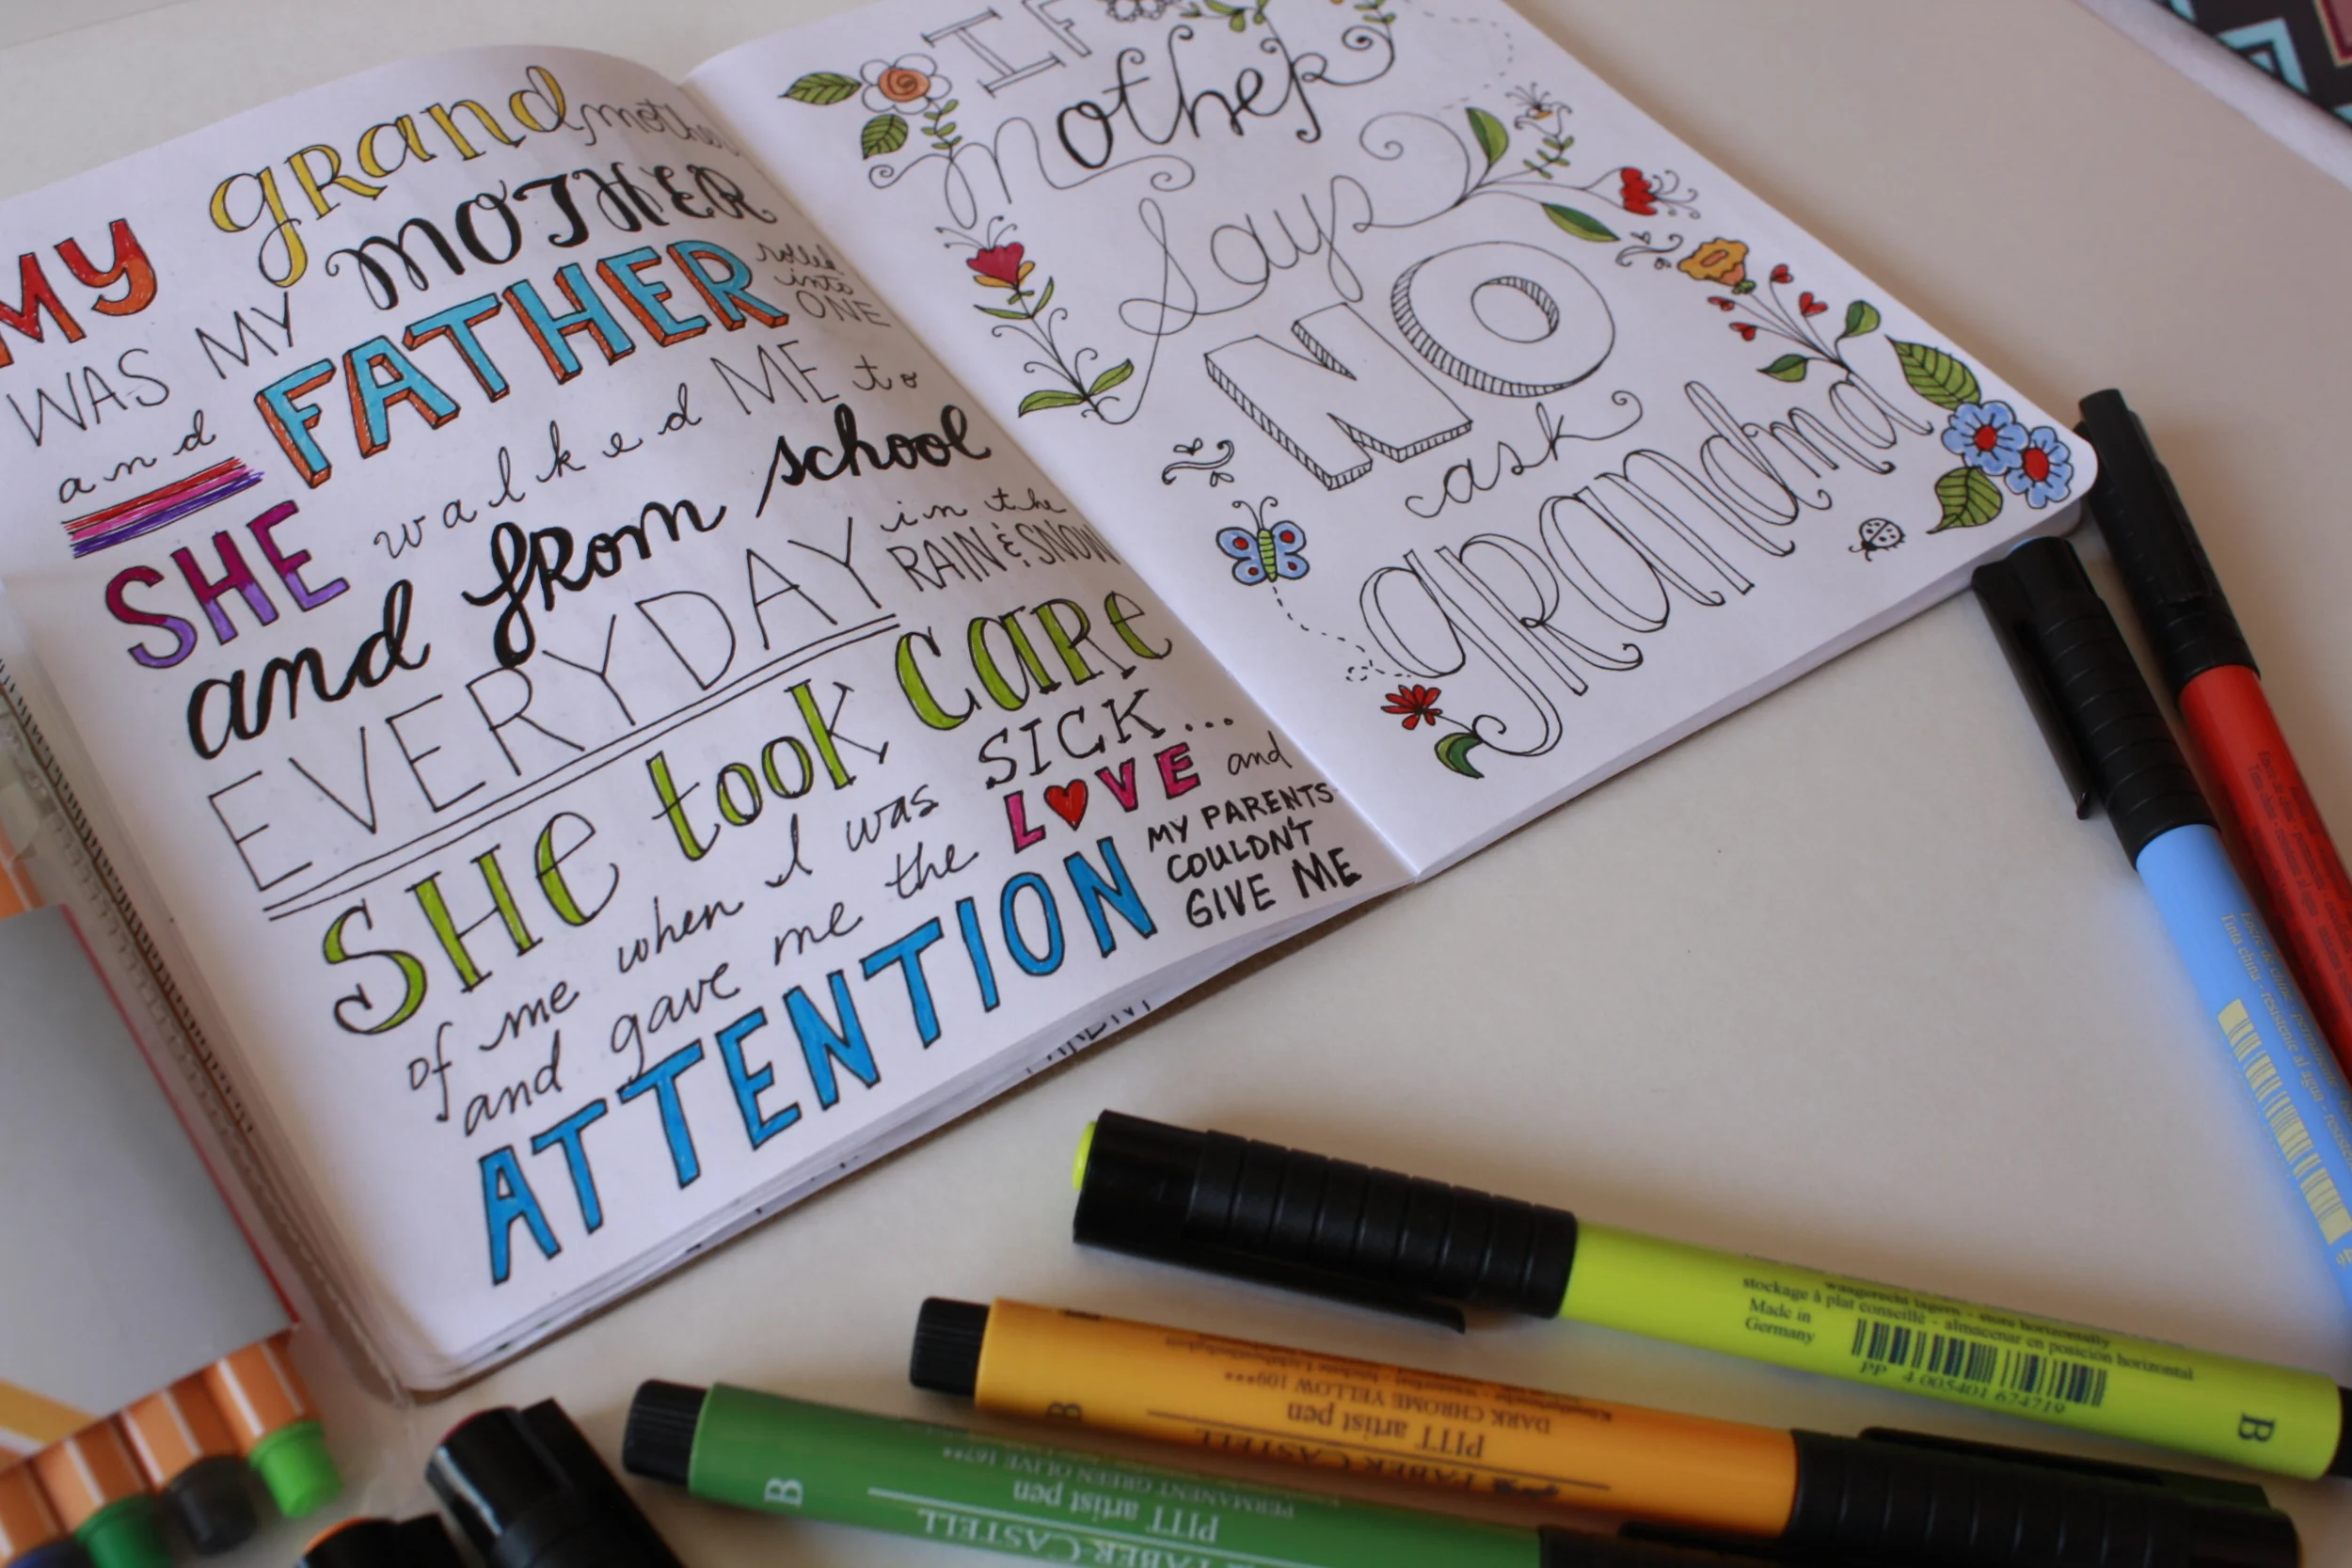 MY grandmother
WAS MY MOTHER
and FATHER rolled
into
ONE
SHE walked ME to
and from school
EVERYDAY in the
RAIN & SNOW
SHE took care
of me when I was SICK...
and gave me the LOVE and
ATTENTION MY PARENTS
COULDN'T
GIVE ME
IF
Mother
Says
NO
ask
grandma
wangerecht lagern - store horizontally
stockage à plat conseillé - almacenar en posición horizontal
Made in
Germany
PP 4 005401 674719
B
FABER-CASTELL
PITT artist pen
DARK CHROME YELLOW 109***
B
FABER-CASTELL
PITT artist pen
PERMANENT GREEN OLIVE 167**
B